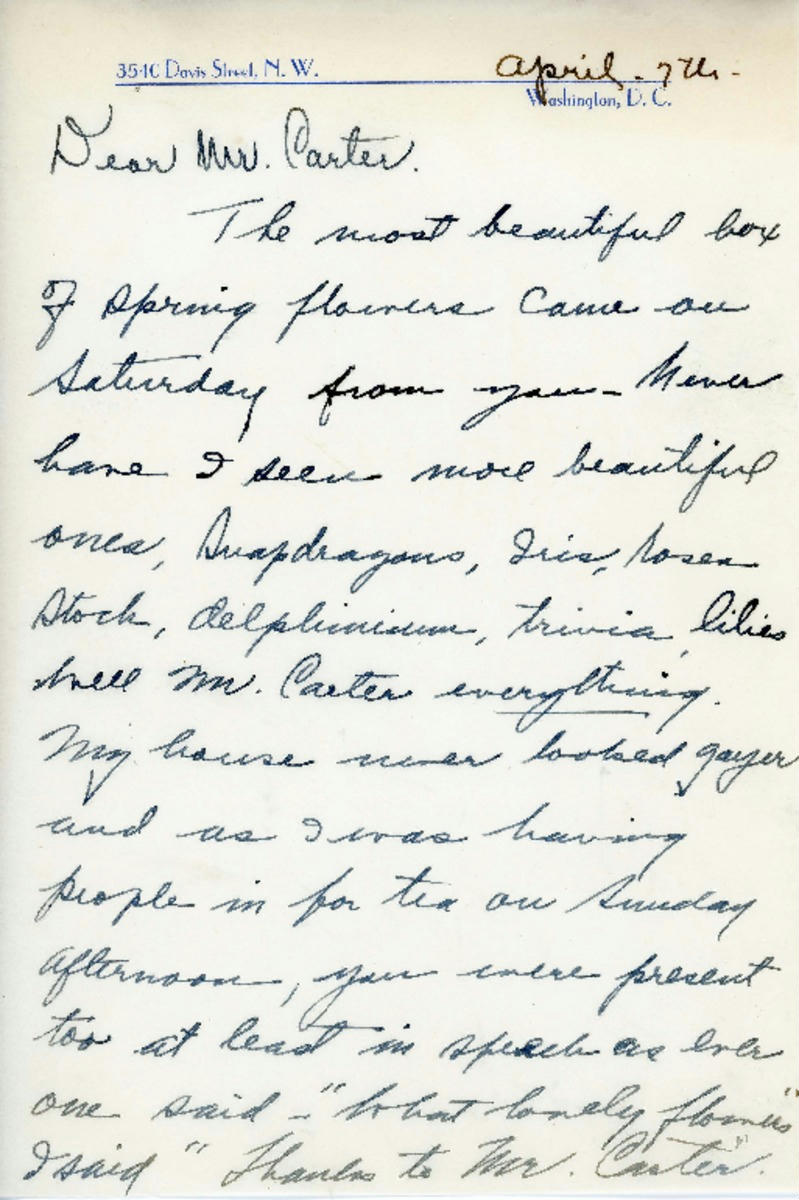 3540 Davis Street, N. W.
April - 7th -
Washington, D. C.
Dear Mr. Carter.
The most beautiful box
of spring flowers came on
Saturday from you - Never
have I seen more beautiful
ones, Snapdragons, Iris, roses
Stock, delphinium, trivia, lilies
well Mr. Carter everything.
My house never looked gayer
and as I was having
people in for tea on Sunday
afternoon, you were present
too at least in speech as ever
one said - "What lovely flowers"
I said "Thanks to Mr. Carter".